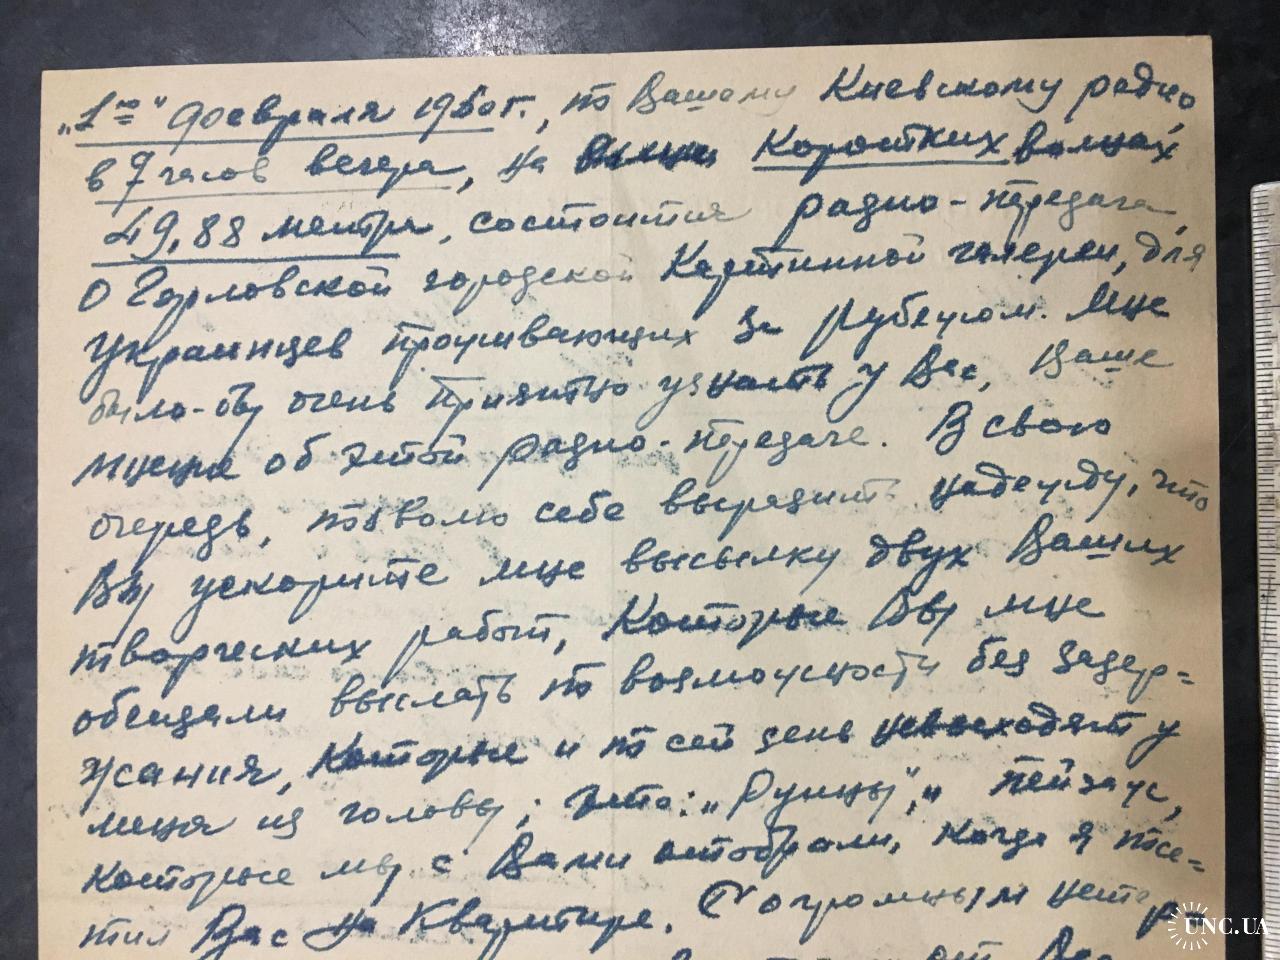 „1го" февраля 1960г., по Вашему Киевскому радио
в 7 часов вечера, на Коротких волнах
49,88 метра, состоится радио-передача
о Горловской городской Картинной галереи, для
Украинцев проживающих за рубежом. Мне
было-бы очень приятно узнать у Вас, Ваше
мнения об этой радио-передаче. В свою
очередь, позволю себе выразить надежду, что
Вы ускорите мне высылку двух Ваших
творческих работ, Которые Вы мне
обещали выслать по возможности без задер=
жания, Которые и по сей день невосходят у
меня из головы; это: „Руины", и пейзаж,
Которые мы с Вами отобрали, когда я посе=
тил Вас на Квартире. С огромным нетер=
Вас
UNC.UA